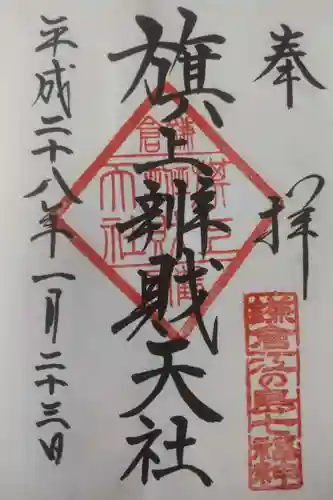 奉拝
旗上辨財天社
平成二十八年一月二十三日
鎌倉江の島七福神